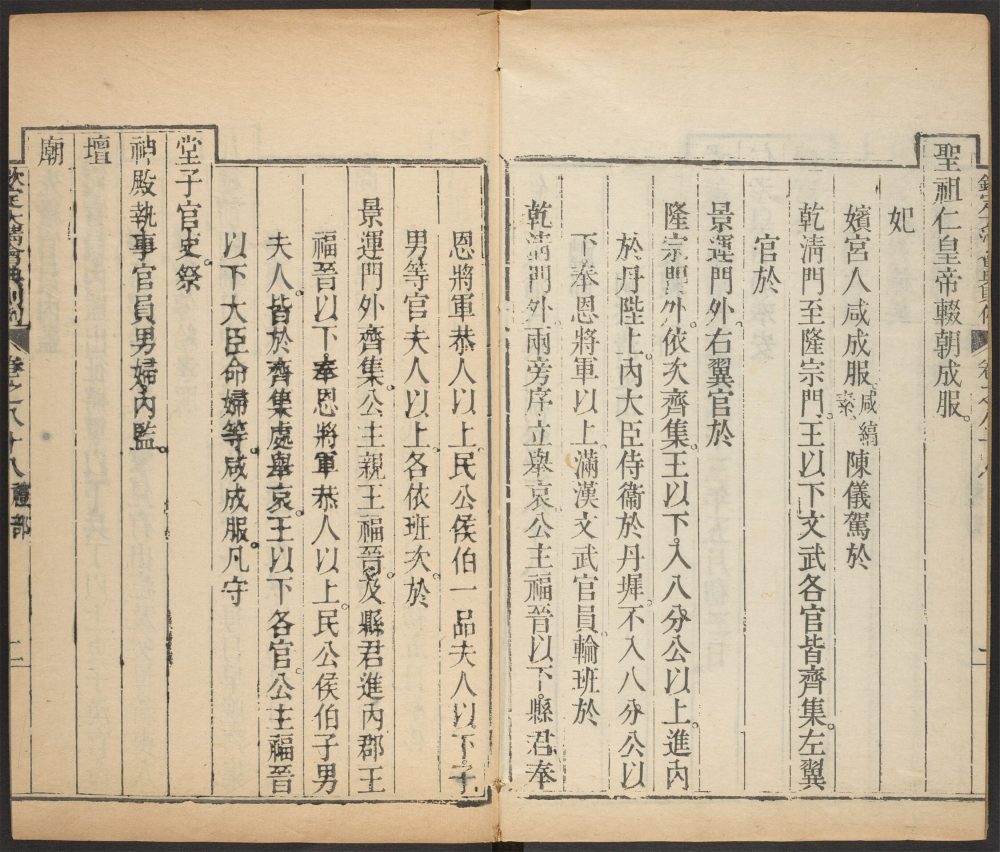 聖祖仁皇帝輟朝成服。
妃
嬪宮人咸成服。咸縞素陳儀駕於
乾清門至隆宗門。王以下文武各官皆齊集。左翼
官於
景運門外。右翼官於
隆宗門外。依次齊集。王以下。入八分公以上。進內
於丹陛上。內大臣侍衞於丹墀。不入八分公以
下。奉恩將軍以上。滿漢文武官員。輪班於
乾清門外。兩旁序立舉哀。公主福晉以下。縣君奉
恩將軍恭人以上。民公侯伯一品夫人以下。子
男等官夫人以上。各依班次。於
景運門外齊集。公主親王福晉。及縣君進內。郡王
福晉以下。奉恩將軍恭人以上。民公侯伯子男
夫人。皆於齊集處舉哀。王以下各官。公主福晉
以下大臣命婦等。咸成服。凡守
堂子官吏。祭
神殿執事官員男婦內監。
壇
廟
欽定大淸會典則例 卷之八十八 禮部 二